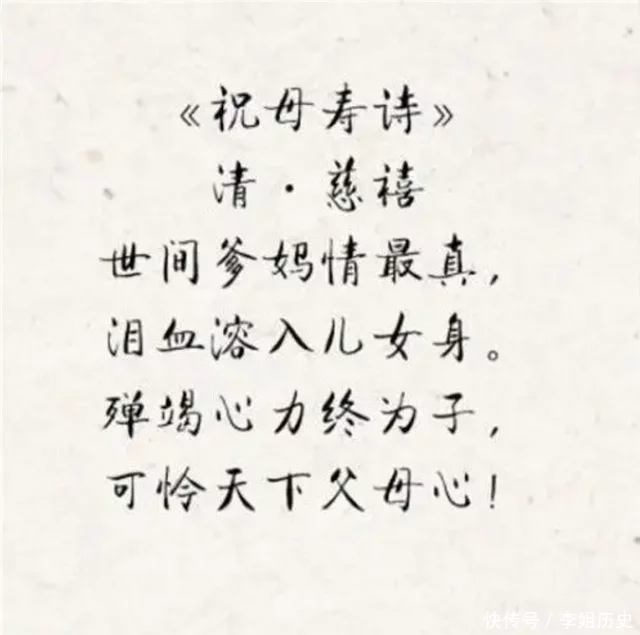 《祝母寿诗》
清·慈禧
世间爹妈情最真，
泪血溶入儿女身。
殚竭心力终为子，
可怜天下父母心！
快传号／李姐历史